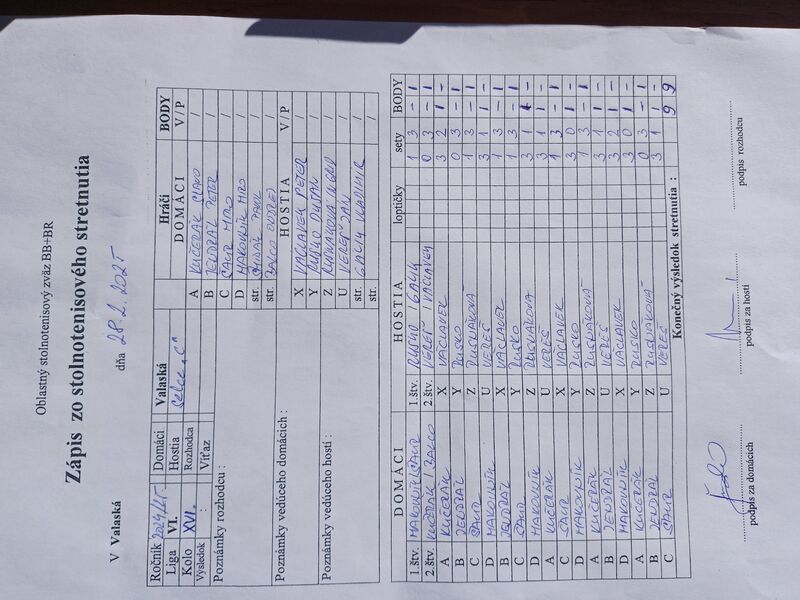 Oblastný stolnotenisový zväz BB+BR
Zápis zo stolnotenisového stretnutia
V Valaská dňa 28.2.2025
Ročník 2024/25 Domáci Valaská
Liga VI. Hostia Selce "C"
Kolo XVI. Rozhodca
Výsledok : Víťaz
Poznámky rozhodcu :
Poznámky vedúceho domácich :
Poznámky vedúceho hostí :
Hráči BODY
DOMÁCI V/P
A KUČERÁK /
B JENDRÁL PETER /
C ŠAUR MIRO /
D MAKOVNÍK MIRO /
str. PAVOL /
str. BALCO ONDREJ /
HOSTIA V/P
X VACLAVEK PETER /
Y DUŠKO DUŠAN /
Z RUSNÁKOVÁ /
U VEREŠ JÁN /
str. GALIK VLADIMÍR /
str. /
DOMÁCI HOSTIA loptičky sety BODY
1. štv. MAKOVNÍK/ŠAUR 1. štv. DUŠKO / GALIK 1 3 - 1
2. štv. KUČERÁK / BALCO 2. štv. VEREŠ / VACLAVEK 0 3 - 1
A KUČERÁK X VACLAVEK 3 2 1 -
B JENDRÁL Y DUSKO 0 3 - 1
C ŠAUR Z RUSNÁKOVÁ 1 3 - 1
D MAKOVNÍK U VEREŠ 3 1 1 -
B JENDRÁL X VACLAVEK 1 3 - 1
C ŠAUR Y DUSKO 1 3 - 1
D MAKOVNÍK Z RUSNÁKOVÁ 3 1 1 -
A KUČERÁK U VEREŠ 3 1 1 -
C ŠAUR X VACLAVEK 1 3 - 1
D MAKOVNÍK Y DUSKO 3 0 1 -
A KUČERÁK Z RUSNÁKOVÁ 3 1 1 -
B JENDRÁL U VEREŠ 3 2 1 -
D MAKOVNÍK X VACLAVEK 3 0 1 -
A KUČERÁK Y DUSKO 0 3 - 1
B JENDRÁL Z RUSNÁKOVÁ 3 1 1 -
C ŠAUR U VEREŠ
Konečný výsledok stretnutia : 9 9
podpis za domácich podpis za hostí podpis rozhodcu